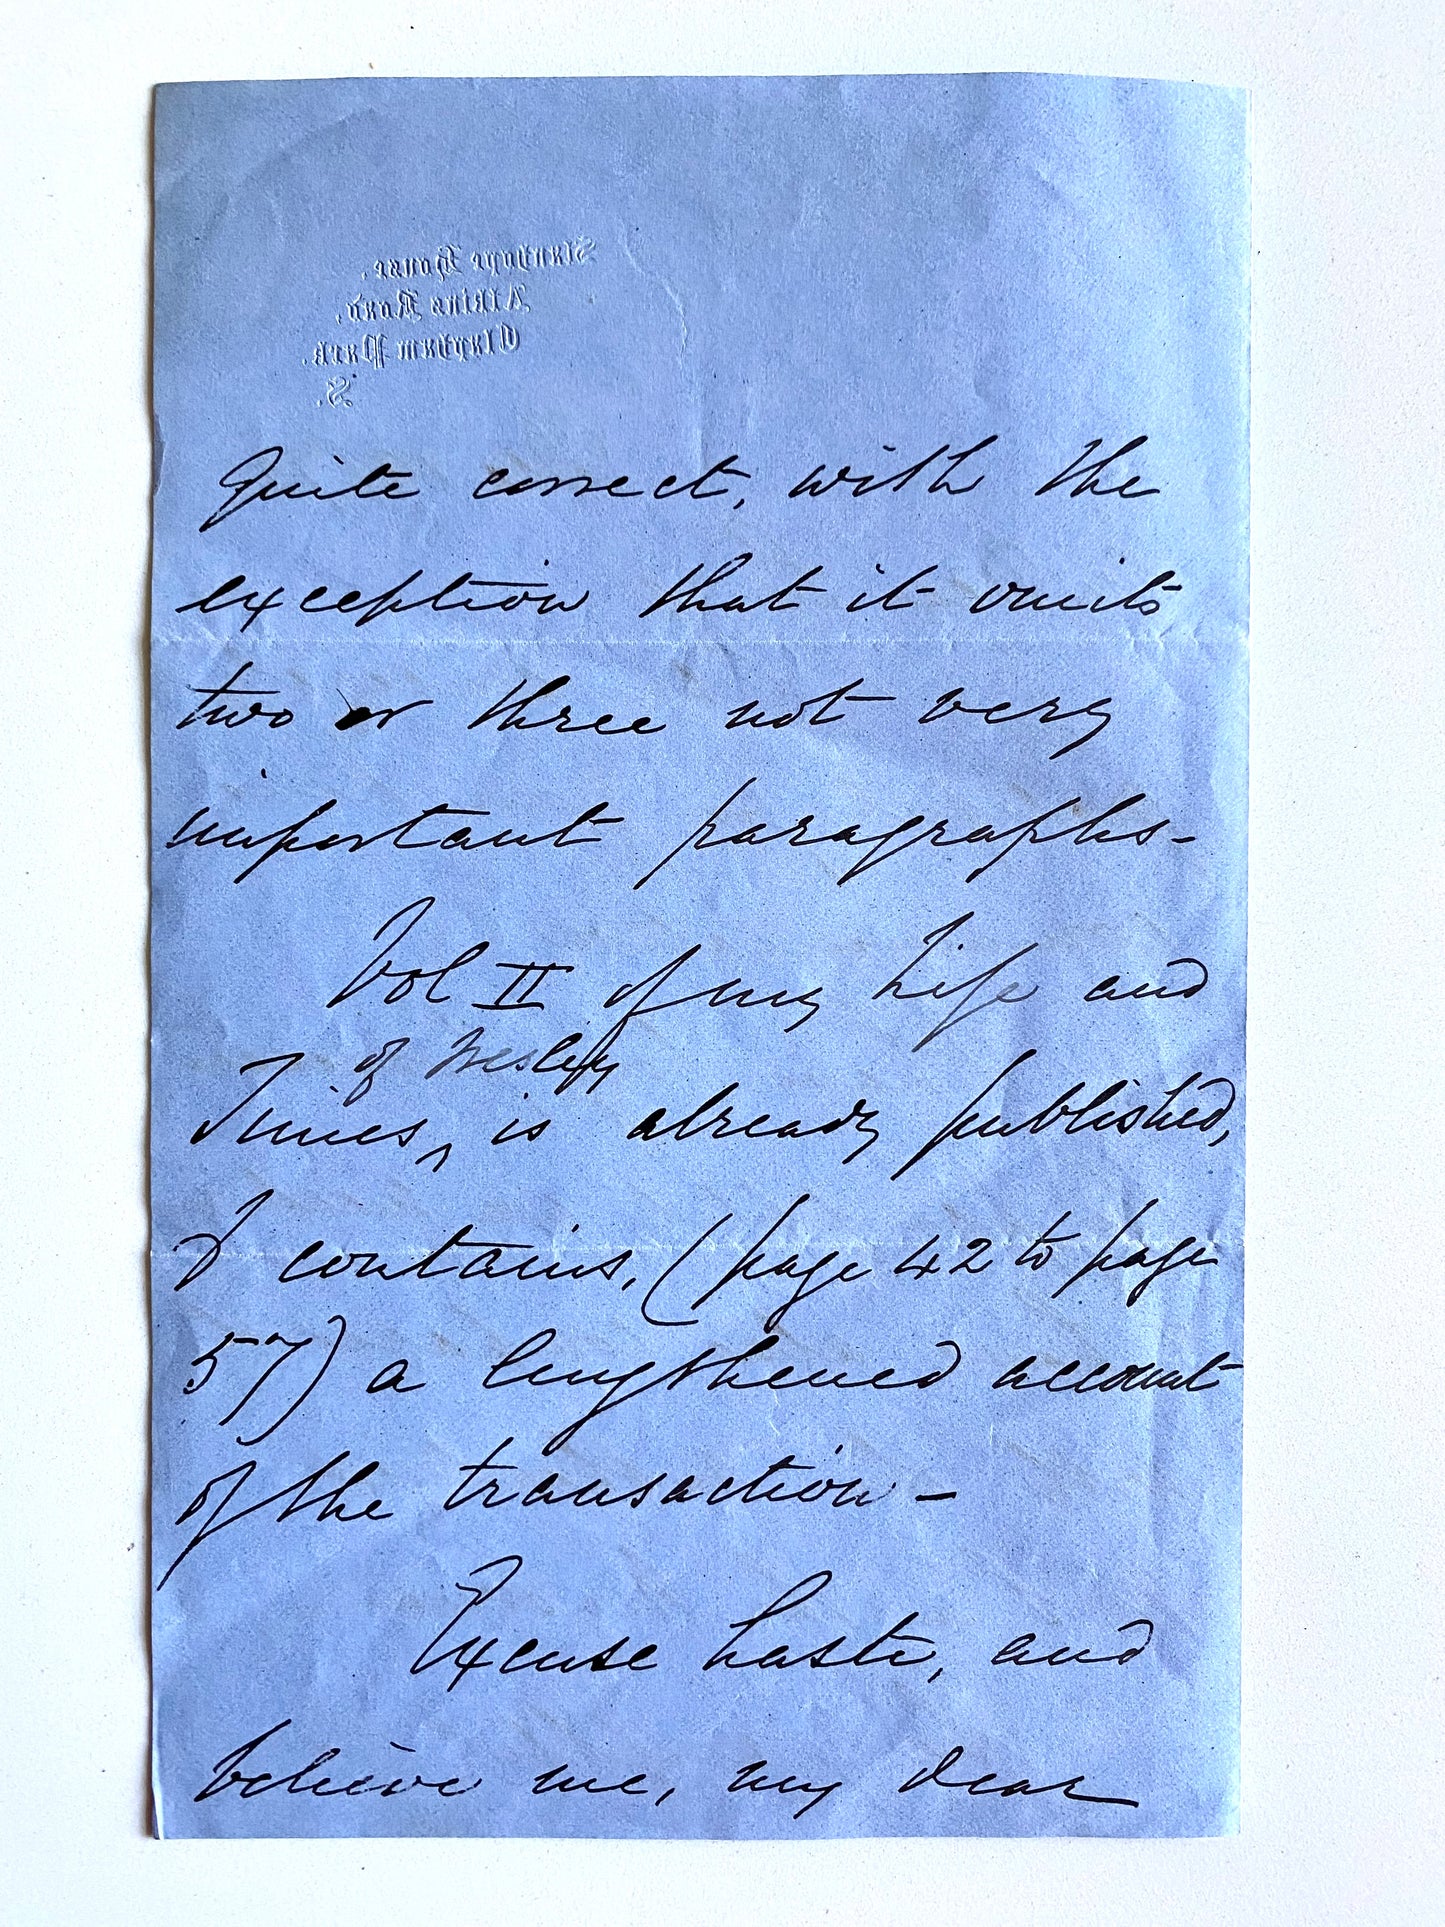 Stanhope House.
Atkins Road.
Clapham Park.
S.
Quite correct, with the
exception that it omits
two or three not very
important paragraphs-
Vol II of my Life and
of Wesley
Times, is already published,
& contains, (page 42 to page
57) a lengthened account
of the transaction -
Excuse haste, and
believe me, my dear